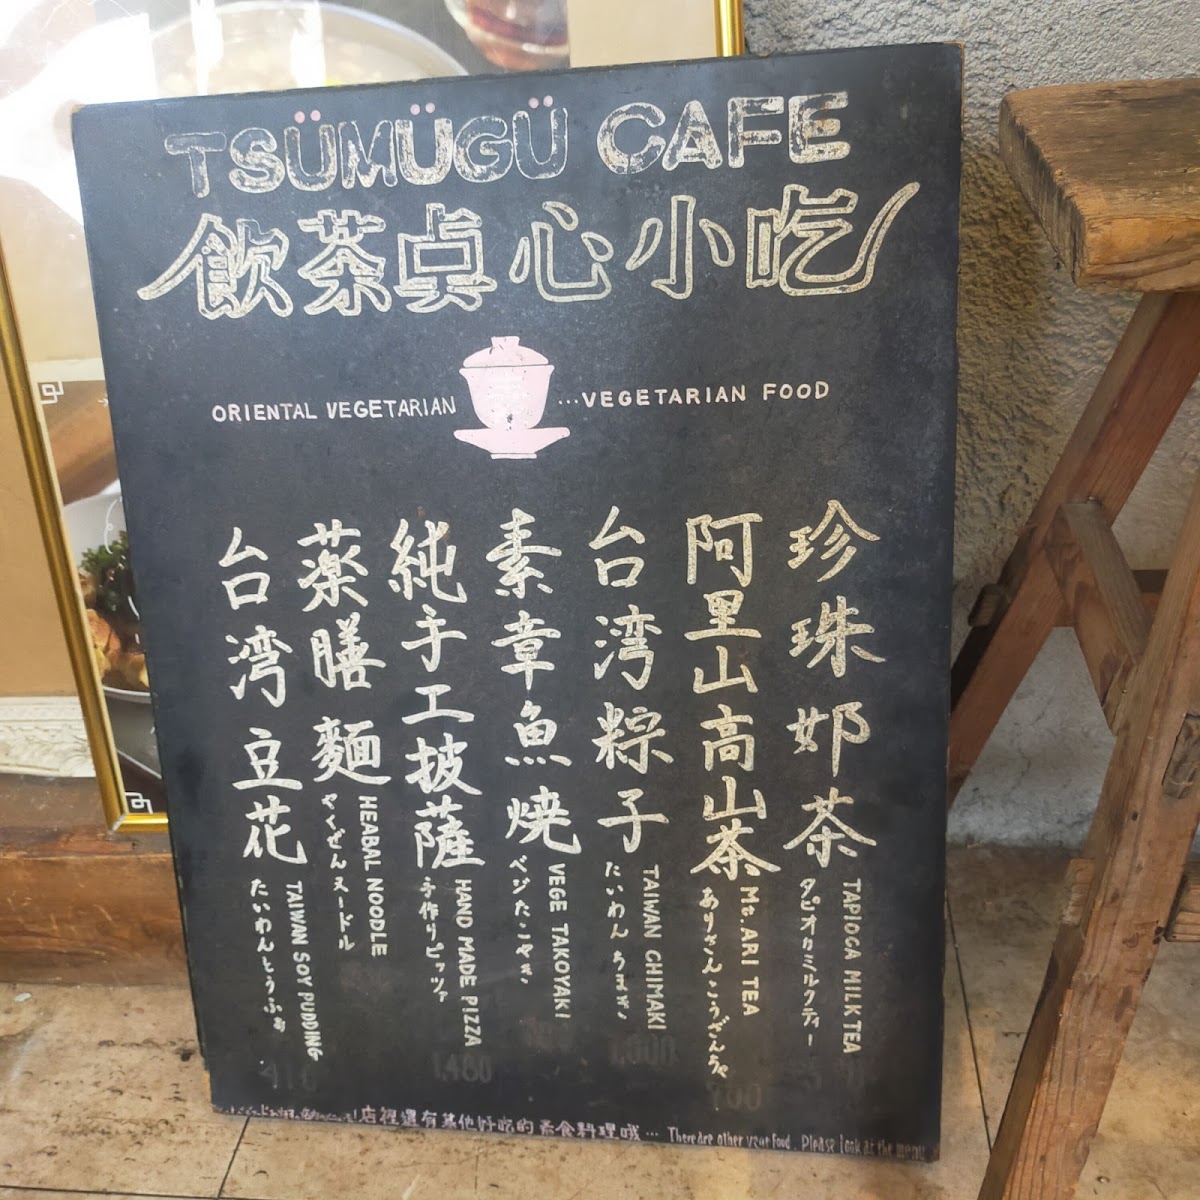 TSÜMÜGÜ CAFE
飲茶点心小吃
ORIENTAL VEGETARIAN ...VEGETARIAN FOOD
珍珠奶茶
TAPIOCA MILK TEA
タピオカミルクティー
阿里山高山茶
Mt.ARI TEA
ありさんこうざんちゃ
700
台湾粽子
TAIWAN CHIMAKI
たいわんちまき
1,000
素章魚焼
VEGE TAKOYAKI
ベジたこやき
純手工披薩
HAND MADE PIZZA
手作りピッツァ
1,480
薬膳麺
HEABAL NOODLE
やくぜんヌードル
台湾豆花
TAIWAN SOY PUDDING
たいわんとうふぁ
410
店裡還有其他好吃的素食料理哦… There are other vege food. Please look at the menu